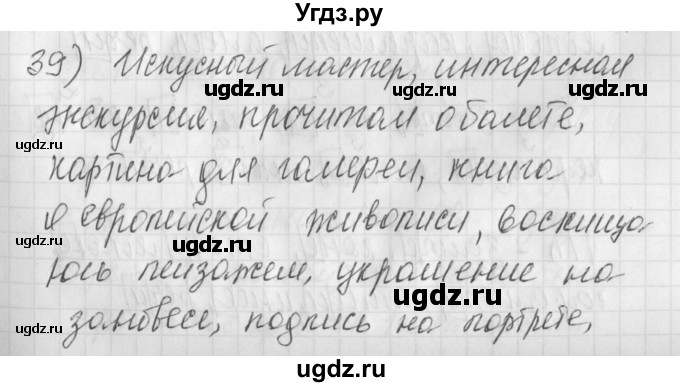 Угдз.ру
39) Искусный мастер, интересная
экскурсия, прочитал о балете,
картина для галереи, книга
о европейской живописи, восхища-
юсь пейзажем, украшение на
занавесе, подпись на портрете,
ugdz.ru
ugdz.ru
ugdz.ru
ugdz.ru
ugdz.ru
ugdz.ru
ugdz.ru
ugdz.ru
ugdz.ru
ugdz.ru
ugdz.ru
ugdz.ru